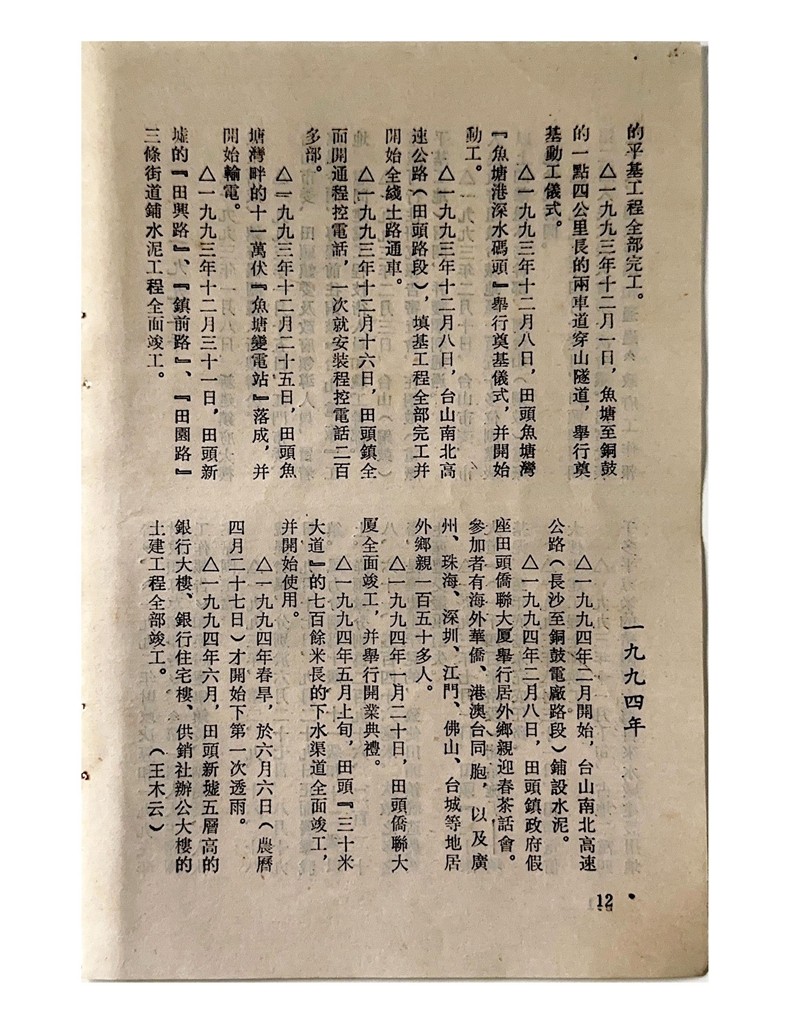 的平基工程全部完工。
△一九九三年十二月一日，魚塘至銅鼓
的一點四公里長的兩車道穿山隧道，舉行奠
基動工儀式。
△一九九三年十二月八日，田頭魚塘灣
『魚塘港深水碼頭』舉行奠基儀式，并開始
動工。
△一九九三年十二月八日，台山南北高
速公路（田頭路段），填基工程全部完工并
開始全綫土路通車。
△一九九三年十二月十六日，田頭鎮全
面開通程控電話，一次就安裝程控電話二百
多部。
△一九九三年十二月二十五日，田頭魚
塘灣畔的十一萬伏『魚塘變電站』落成，并
開始輸電。
△一九九三年十二月三十一日，田頭新
墟的『田興路』、『鎮前路』、『田園路』
三條街道鋪水泥工程全面竣工。
一九九四年
△一九九四年二月開始，台山南北高速
公路（長沙至銅鼓電廠路段）鋪設水泥。
△一九九四年二月八日，田頭鎮政府假
座田頭僑聯大厦舉行居外鄉親迎春茶話會。
參加者有海外華僑、港澳台同胞，以及廣
州、珠海、深圳、江門、佛山、台城等地居
外鄉親一百五十多人。
△一九九四年一月二十日，田頭僑聯大
厦全面竣工，并舉行開業典禮。
△一九九四年五月上旬，田頭『三十米
大道』的七百餘米長的下水渠道全面竣工，
并開始使用。
△一九九四年春旱，於六月六日（農曆
四月二十七日）才開始下第一次透雨。
△一九九四年六月，田頭新墟五層高的
銀行大樓、銀行住宅樓、供銷社辦公大樓的
土建工程全部竣工。　（王木云）
12